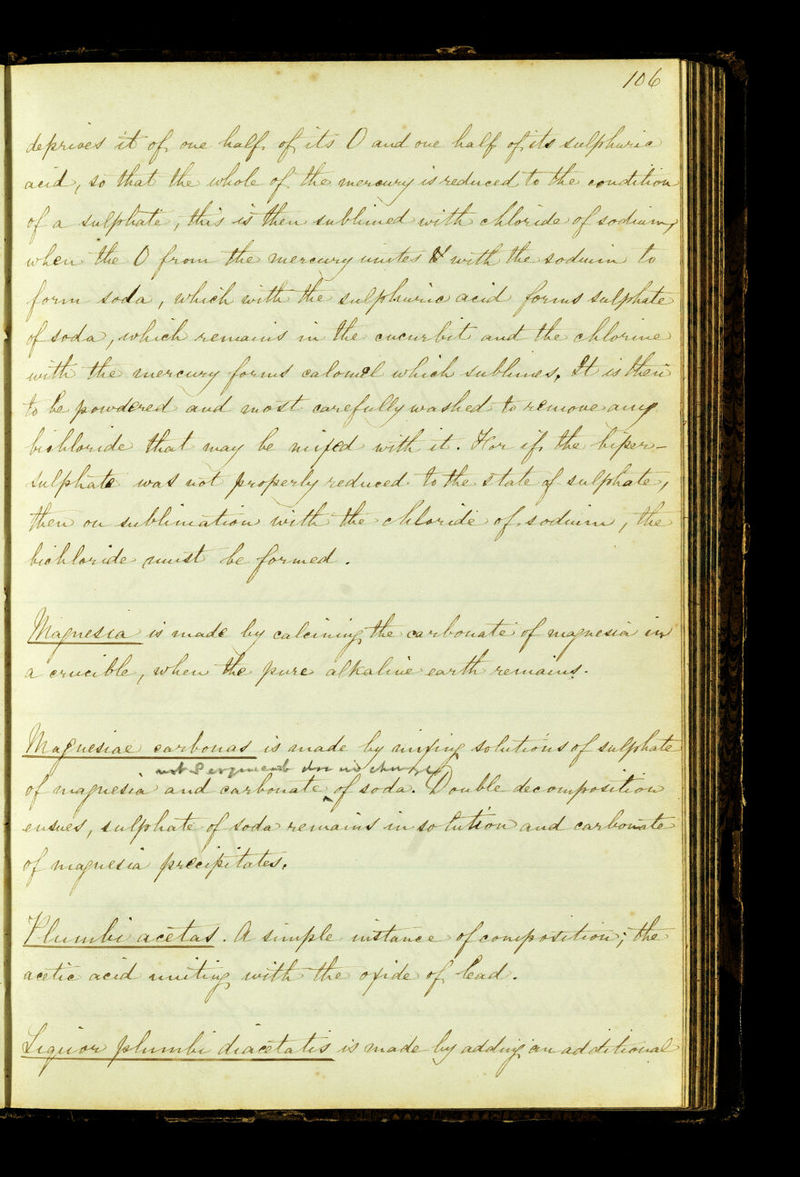 106
deprives it of one half of its O and one half of its sulphuric
acid, so that the whole of the mercury is reduced to the condition
of a sulphate, this is then sublimed with chloride of sodium,
when the O from the mercury unites & with the sodium to
form soda, which with the sulphuric acid forms sulphate
of soda, which remains in the cucurbit and the chlorine
with the mercury forms calomel which sublimes. It is then
to be powdered and most carefully washed to remove any
bichloride that may be mixed with it. For if the biper-
sulphate was not properly reduced to the state of sulphate,
then on sublimation with the chloride of sodium, the
bichloride must be formed.
Magnesia is made by calcining the carbonate of magnesia in
a crucible, when the pure alkaline earth remains.
Magnesiae carbonas is made by mixing solutions of sulphate
of magnesia and carbonate of soda. Double decomposition
ensues, sulphate of soda remains in solution and carbonate
of magnesia precipitates.
Plumbi acetas. A simple instance of composition; the
acetic acid uniting with the oxide of lead.
Liquor plumbi diacetatis is made by adding an additional